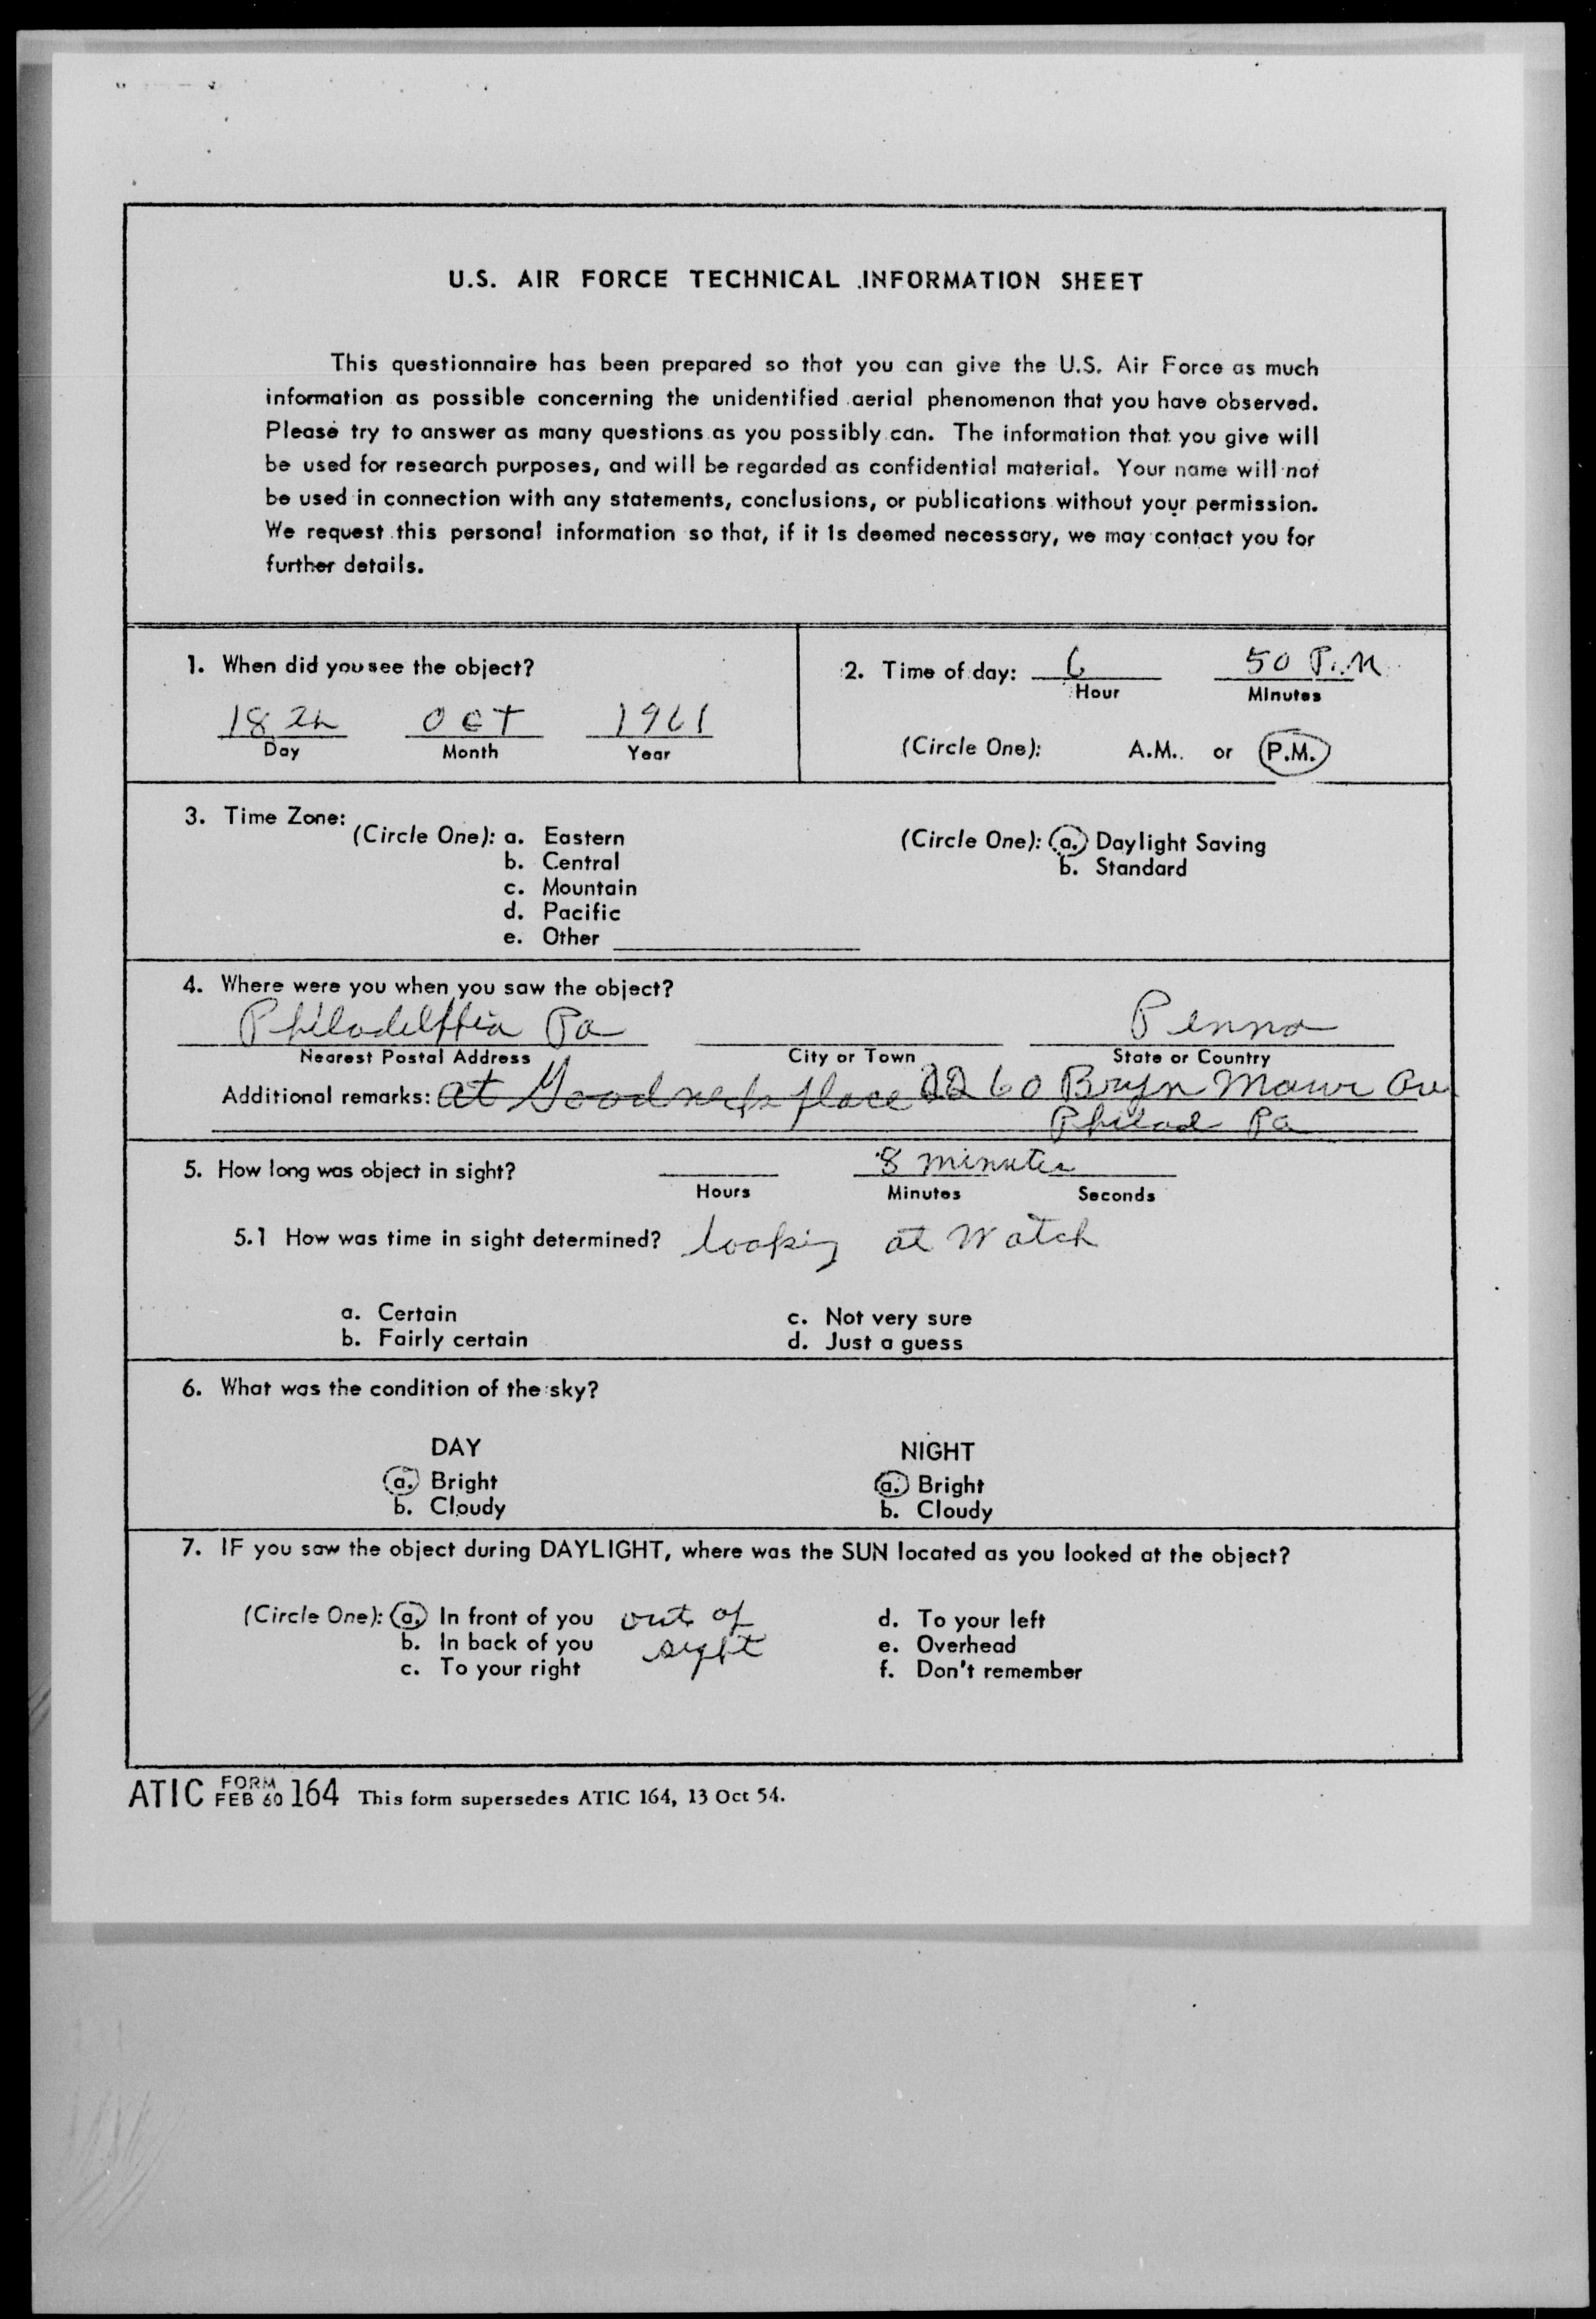 U.S. AIR FORCE TECHNICAL INFORMATION SHEET
This questionnaire has been prepared so that you can give the U.S. Air Force as much
information as possible concerning the unidentified aerial phenomenon that you have observed.
Please try to answer as many questions as you possibly can. The information that you give will
be used for research purposes, and will be regarded as confidential material. Your name will not
be used in connection with any statements, conclusions, or publications without your permission.
We request this personal information so that, if it is deemed necessary, we may contact you for
further details.
1. When did you see the object?
18 th OCT 1961
Day Month Year
2. Time of day: 6 50 P.M
Hour Minutes
(Circle One): A.M. or P.M.
3. Time Zone:
(Circle One): a. Eastern
b. Central
c. Mountain
d. Pacific
e. Other
(Circle One): a. Daylight Saving
b. Standard
4. Where were you when you saw the object?
Philadelphia Pa Penna
Nearest Postal Address City or Town State or Country
Additional remarks: at place 2260 Bryn Mawr Av
Philad Pa
5. How long was object in sight? 8 minutes
Hours Minutes Seconds
5.1 How was time in sight determined? looking at Watch
a. Certain c. Not very sure
b. Fairly certain d. Just a guess
6. What was the condition of the sky?
DAY NIGHT
a. Bright a. Bright
b. Cloudy b. Cloudy
7. IF you saw the object during DAYLIGHT, where was the SUN located as you looked at the object?
(Circle One): a. In front of you out of d. To your left
b. In back of you sight e. Overhead
c. To your right f. Don't remember
ATIC FORM FEB 60 164 This form supersedes ATIC 164, 13 Oct 54.